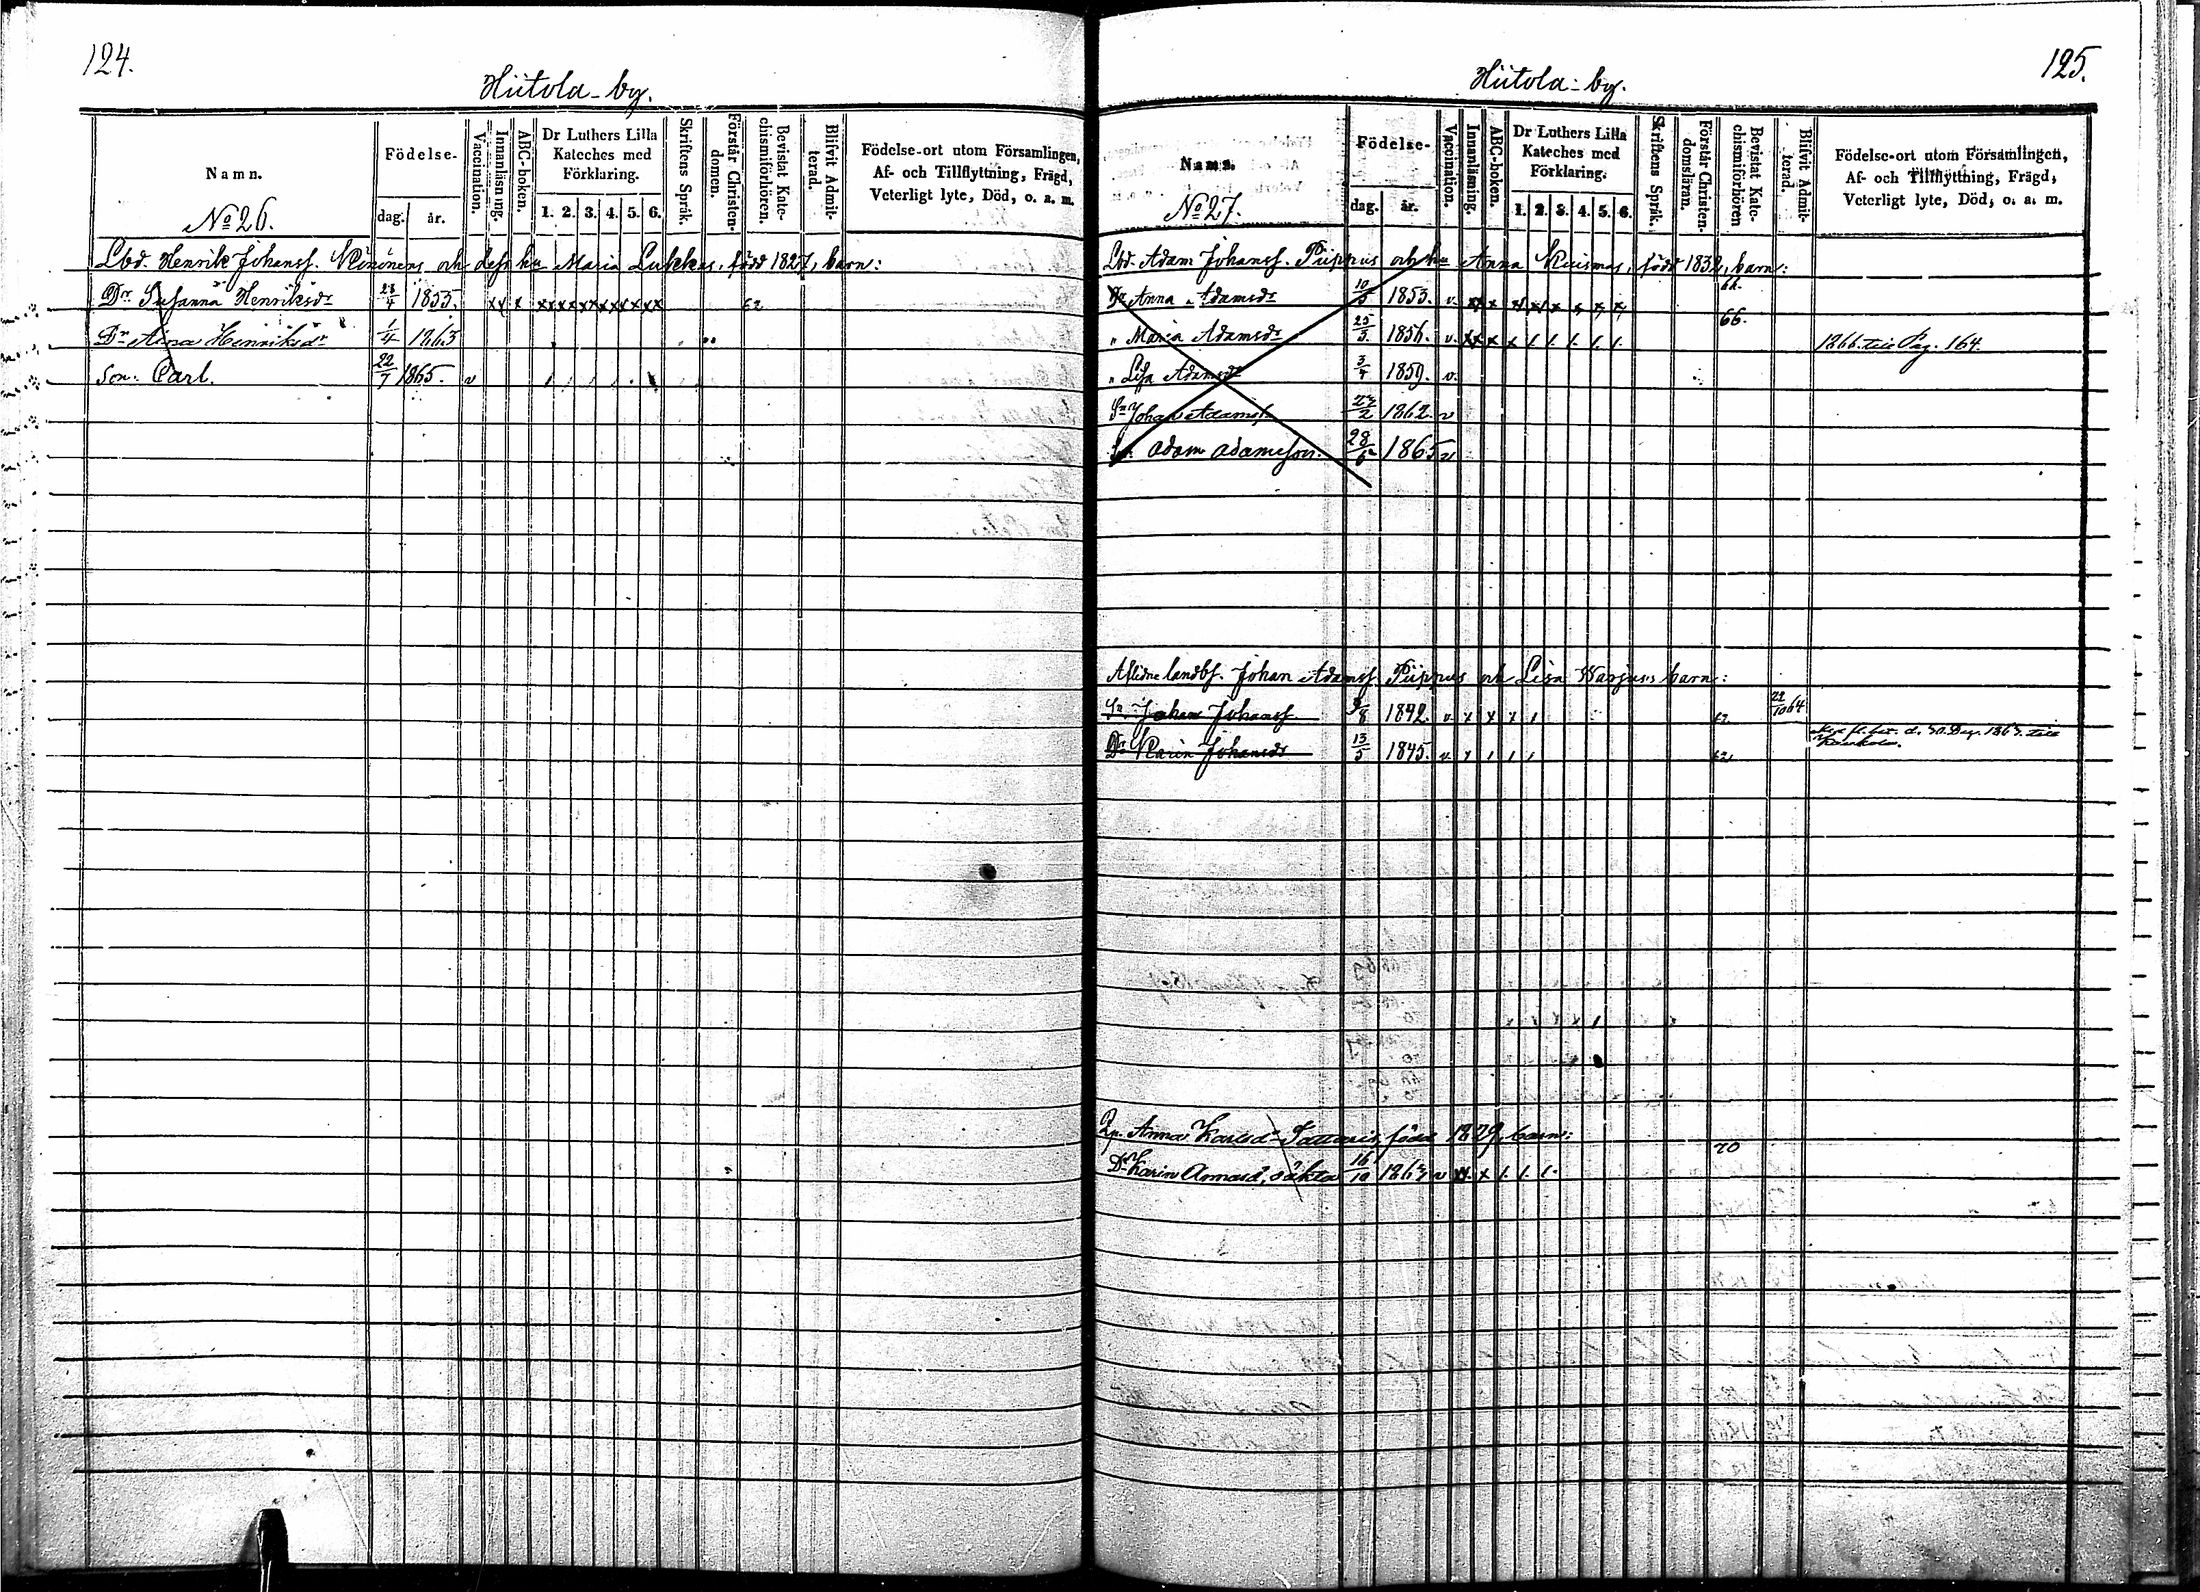 124.
Hiitola-by.
Namn.
Födelse-
dag.
år.
Vaccination.
Innanläsning.
ABC-boken.
Dr Luthers Lilla Kateches med Förklaring.
1. 2. 3. 4. 5. 6.
Skriftens Språk.
Förstår Christendomen.
Bevistat Katechismiförhören.
Blifvit Admitterad.
Födelse-ort utom Församlingen,
Af- och Tillflyttning, Frägd,
Veterligt lyte, Död, o. a. m.
No 26.
Lbd. Henrik Johanss. och dess hu Maria Lukkas, född 1827, barn:
Dr Susanna Henriksdr 23/4 1855. x x x x x x x x x 62
Dr Aina Henriksdr 1/4 1863
Son: Carl. 22/7 1865. v
125.
Hiitola-by.
Namn.
Födelse-
dag.
år.
Vaccination.
Innanläsning.
ABC-boken.
Dr Luthers Lilla Kateches med Förklaring.
1. 2. 3. 4. 5. 6.
Skriftens Språk.
Förstår Christendomsläran.
Bevistat Katechismiförhören
Blifvit Admitterad.
Födelse-ort utom Församlingen,
Af- och Tillflyttning, Frägd,
Veterligt lyte, Död, o. a. m.
No 27.
Lbd. Adam Johanss. Piippus och hu Anna Kuismas, född 1832, barn:
Dr Anna Adamsdr 10/5 1853. v. x x x x x x x x 62.
" Maria Adamsdr 25/3 1856. v. x x x 66. 1866 till Pag. 164.
" Lisa Adamsdr 3/4 1859. v.
Sn Johan Adamss. 23/2 1862. v
Sn. Adam Adamsson. 28/6 1865 v
Aflidne landbs. Johan Adamss. Piippus och Lisa barn:
Sn. Johan Johanss. 9/8 1842. v x x x 62 22/10 64
Dr Karin Johansdr 13/5 1845. v x 62 d. 30 Dez. 1863 till
Anna Karlsdr född 1829, barn:
Dr Karin Annasd, oäkta 16/10 1863 v x x 1. 1. 1. 70